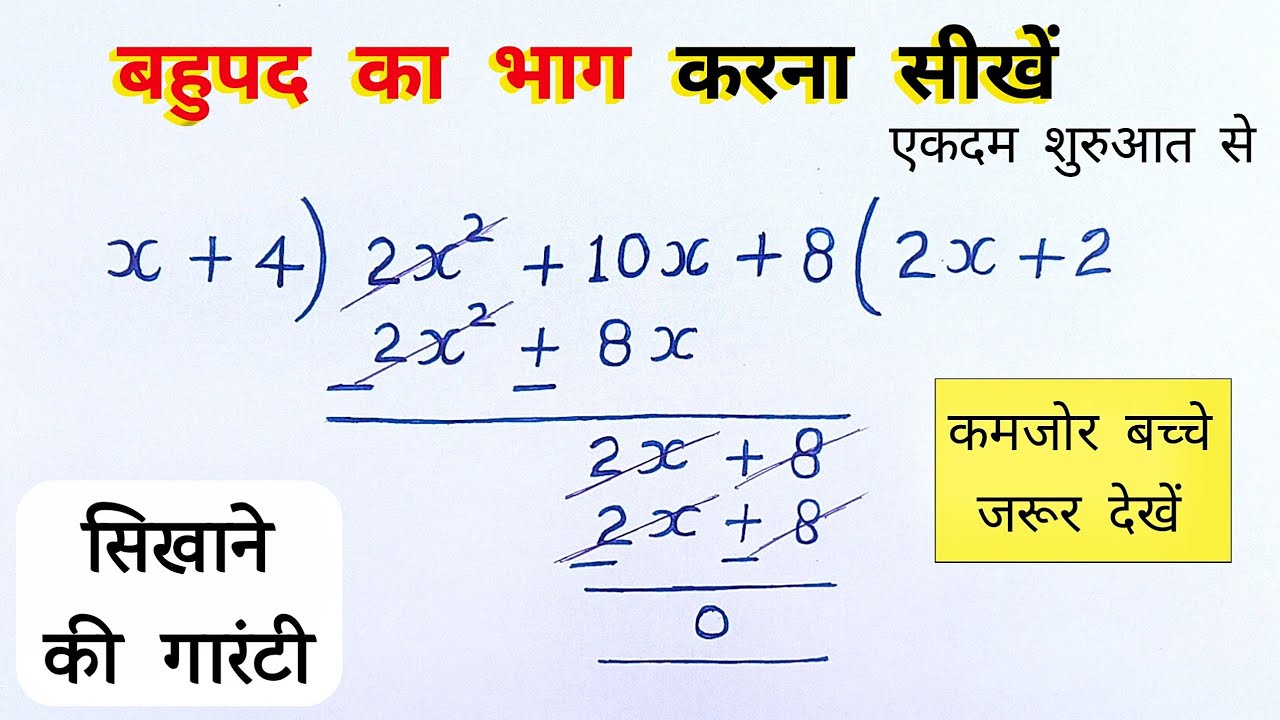 बहुपद का भाग करना सीखें
एकदम शुरुआत से
x + 4) 2x² + 10x + 8 ( 2x + 2
2x² + 8x
— —
2x + 8
2x + 8
— —
0
कमजोर बच्चे
जरूर देखें
सिखाने
की गारंटी